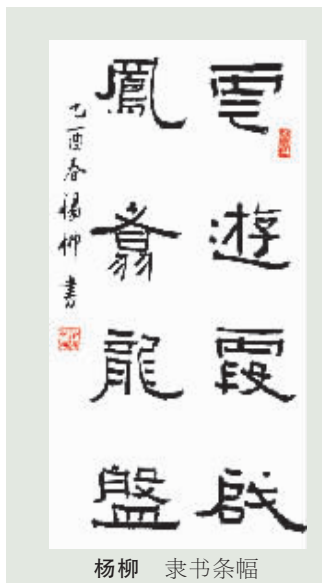 雲遊霞啟
鳳翥龍盤
乙酉春楊柳書
杨柳 隶书条幅